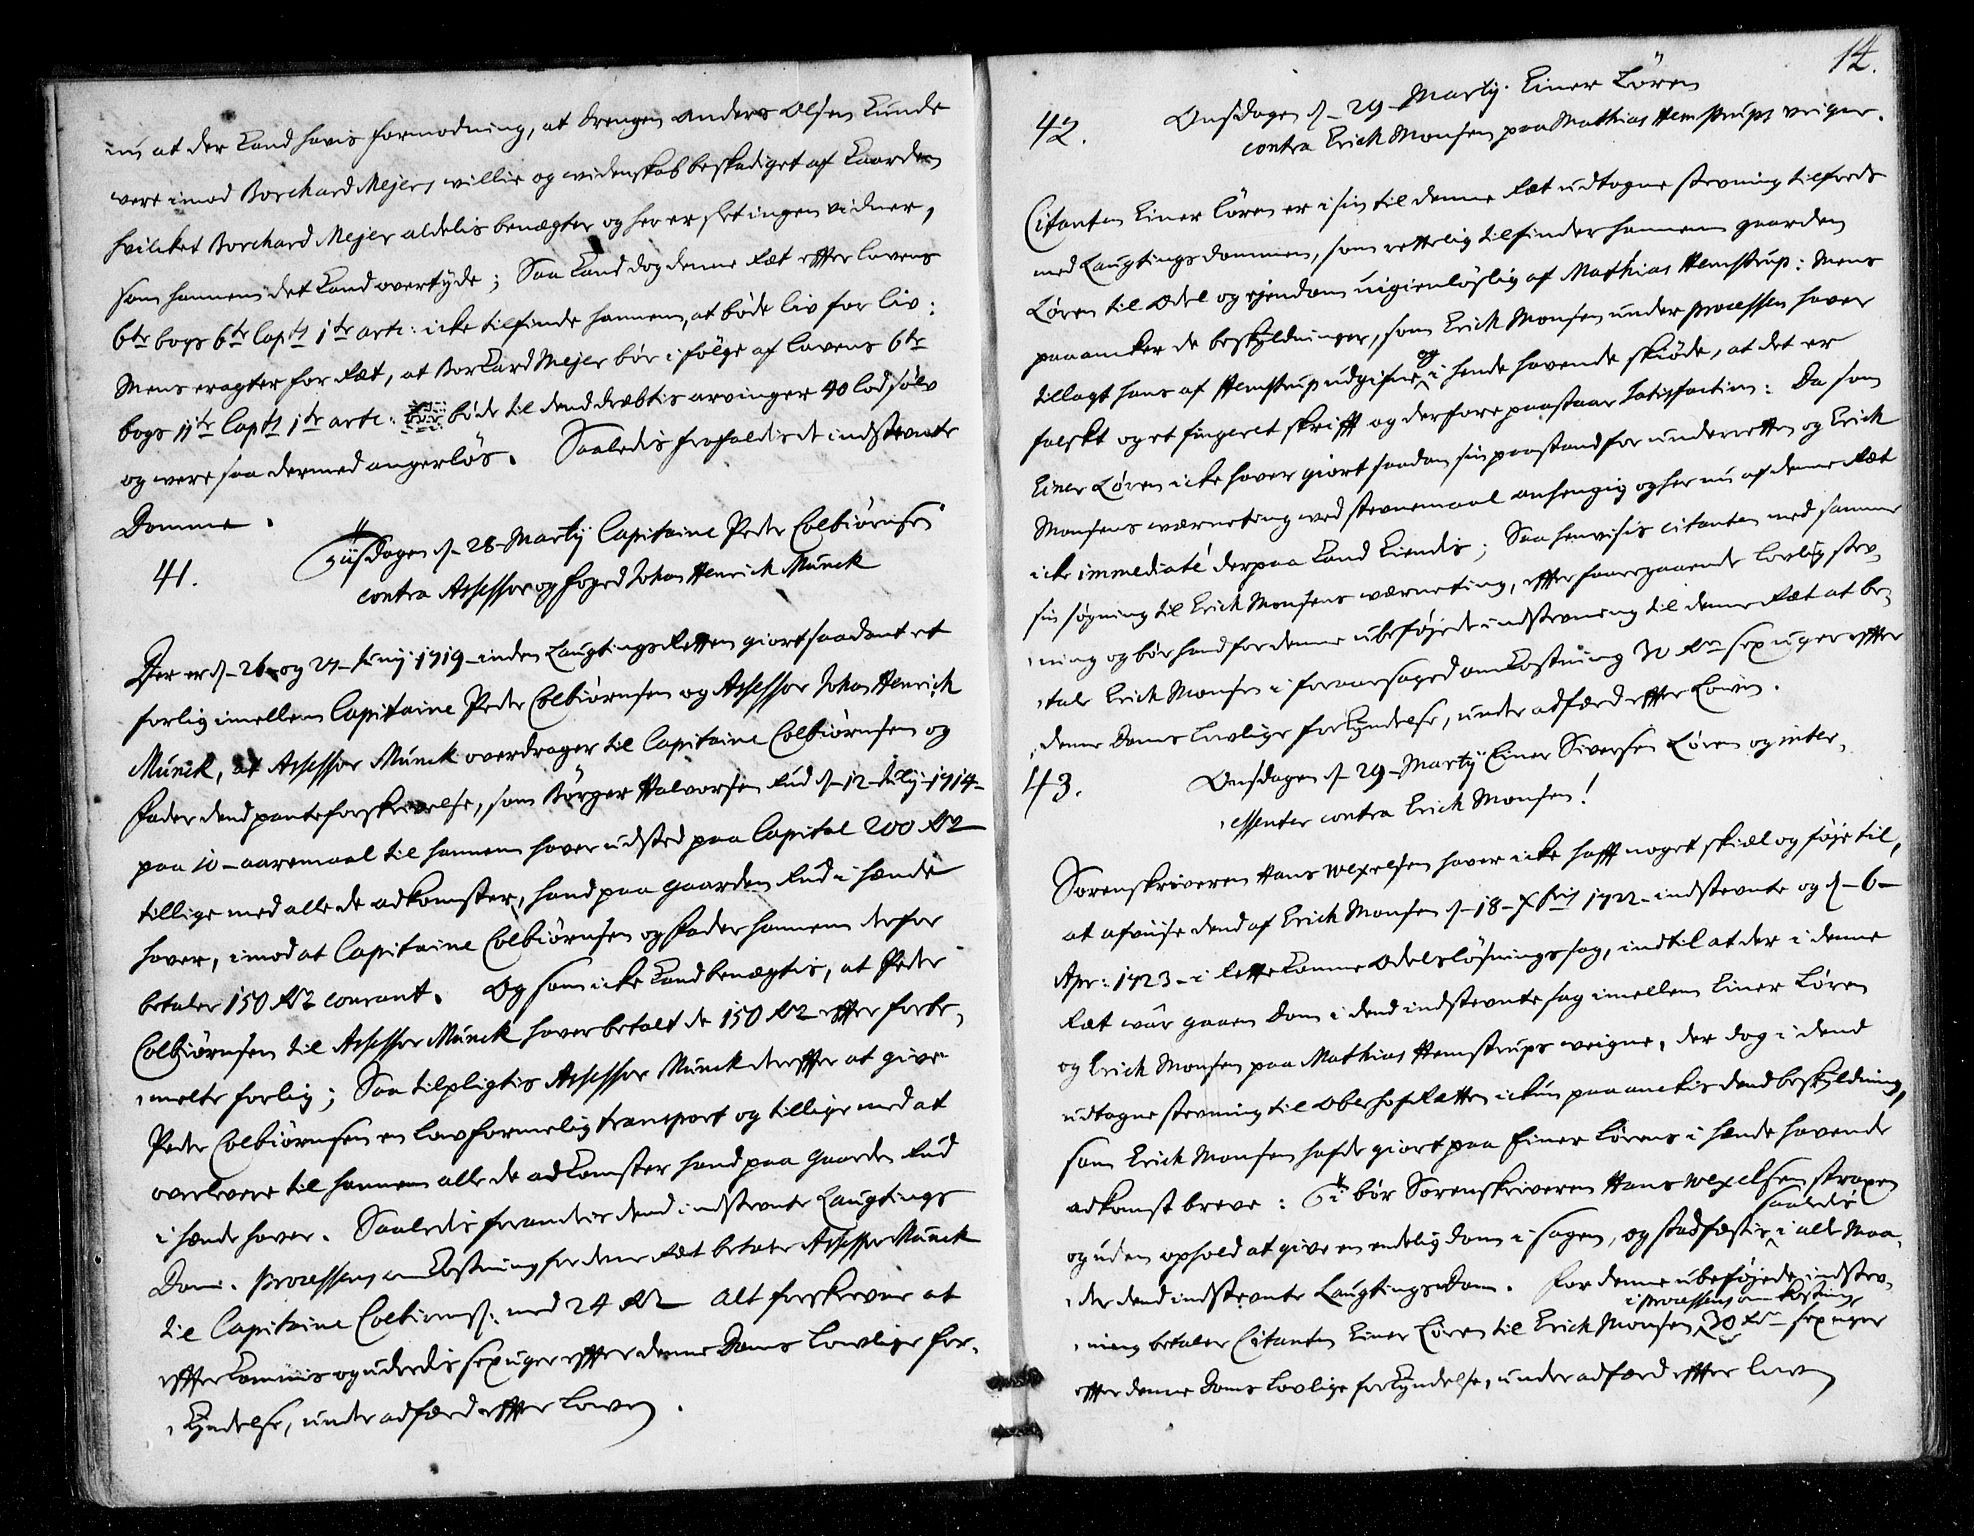 nu at der Kand havis formodning, at drengen Anders Olsen Kunde
were imod Borchard Mejers willie og widenskab beskadiget af Kaarden
hvilcket Borchard Mejer aldelis benægter og her er slet ingen vidner,
som hannem det Kand overtyde; Saa Kand dog denne Ræt effter lovens
6te bogs 6te Capts 1te artc: icke tilfinde hannem, at bøde liv for liv:
Mens eragter for Ræt, at Borkard Mejer bør i følge af lovens 6te
bogs 11te Capts 1te artc: bøde til dend dræbtis arvinger 40 lod sølv
og were saa dermed angerløs. Saaledis frafaldis de indstevnte
Domme.
41.
Tiisdagen d. 28 Martij Capitaine Peder Colbiørnsen
contra Assessor og foged Johan Henrich Munck
Der er d. 26 og 27 Junij 1719 inden LaugtingsRetten giort saadant et
forlig imellem Capitaine Peder Colbiørnsen og Assessor Johan Henrich
Munck, at Assessor Munck overdrager til Capitaine Colbiørnsen og
Fader dend panteforskrivelse, som Børger Halvorsen Rud d. 12 Julij 1714
paa 10 aaremaal til hannem haver udsted paa Capital 200 Rdr
tillige med alle de adkomster, hand paa gaarden Rud i hænde
haver, imod at Capitaine Colbiørnsen og Fader hannem derfor
betaler 150 Rdr courant. Og som icke Kand benægtis, at Peder
Colbiørnsen til Assessor Munck haver betalt de 150 Rdr effter forbe,
,melte forlig; Saa tilpligtis Assessor Munck dereffter at give
Peder Colbiørnsen en lavformelig transport og tillige med at
overlevere til hannem alle de adKomster hand paa gaarden Rud
i hænde haver. Saaledis forandris dend indstevnte Laugtings
Dom. Processens omKostning for denne Ræt betaler Assessor Munck
til Capitaine Colbiørns: med 24 Rdr Alt forskrevne at
effterKommis og uderdis sex uger effter denne Doms Lowlige for,
,Kyndelse, under adfærd effter Lowen.
14.
42.
Onsdagen d. 29 Martij. Einer Løren
contra Erich Monsen paa Mathias Hemstrups veigne.
Citanten Einer Løren er i sin til denne Ræt udtagne stevning tilfreds
med Laugtingsdommen, som rettelig tilfinder hannem gaarden
Løren til Odel og ejendom uigienløslig af Mathias Hemstrup: Mens
paaancker de beskyldninger, som Erich Monsen under processen haver
tillagt hans af Hemstrup udgifne og i hende havende skiøde, at det er
falskt og et fingeret skrifft og derfore paastaar Satisfaction: Da som
Einer Løren icke haver giort saadan sin paastand for underretten og Erich
Monsens værneting ved stevnemaal anhengig og her nu af denne Ræt
icke immediaté derpaa Kand Kiendis; Saa henvisis citanten med samme
sin søgning til Erich Monsens værneting, effter foregaaende lovlig stev,
,ning og bør hand for denne ubeføjede indstevning til denne Ræt at be,
,tale Erich Monsen i foraarsaged omKostning 30 Rdr sex uger effter
,denne Doms Lowlige forKyndelse, under adfærd effter Lowen.
43.
Onsdagen d. 29 Martij Einer Siversen Løren og inter,
,essenter contra Erich Monsen!
Sorenskriveren Hans Wexelsen haver icke hafft noget skiel og føje til,
at afviise dend af Erich Monsen d. 18 Xbris 1722 indstevnte og d. 6
Apr: 1723 i Rette Komne Odelsløsningssag, indtil at der i denne
Ræt var gaaen Dom i dend indstevnte sag imellem Einer Løren
og Erich Monsen paa Mathias Hemstrups veigne, der dog i dend
udtagne stevning til OberhofRætten ickun paaanckis dend beskyldning,
som Erich Monsen hafde giort paa Einer Lørens i hænde havende
adkomst breve: Ti bør Sorenskriveren Hans Wexelsen straxen
og uden ophold at give en endelig dom i sagen, og stadfæstis saaledis i alle Maa,
,der dend indstevnte LaugtingsDom. For denne ubeføjede indstev,
,ning betaler Citanten Einer Løren til Erich Monsen i processens omKostning 30 Rdr sex uger
effter denne Doms Lovlige forKyndelse, under adfærd effter lowen